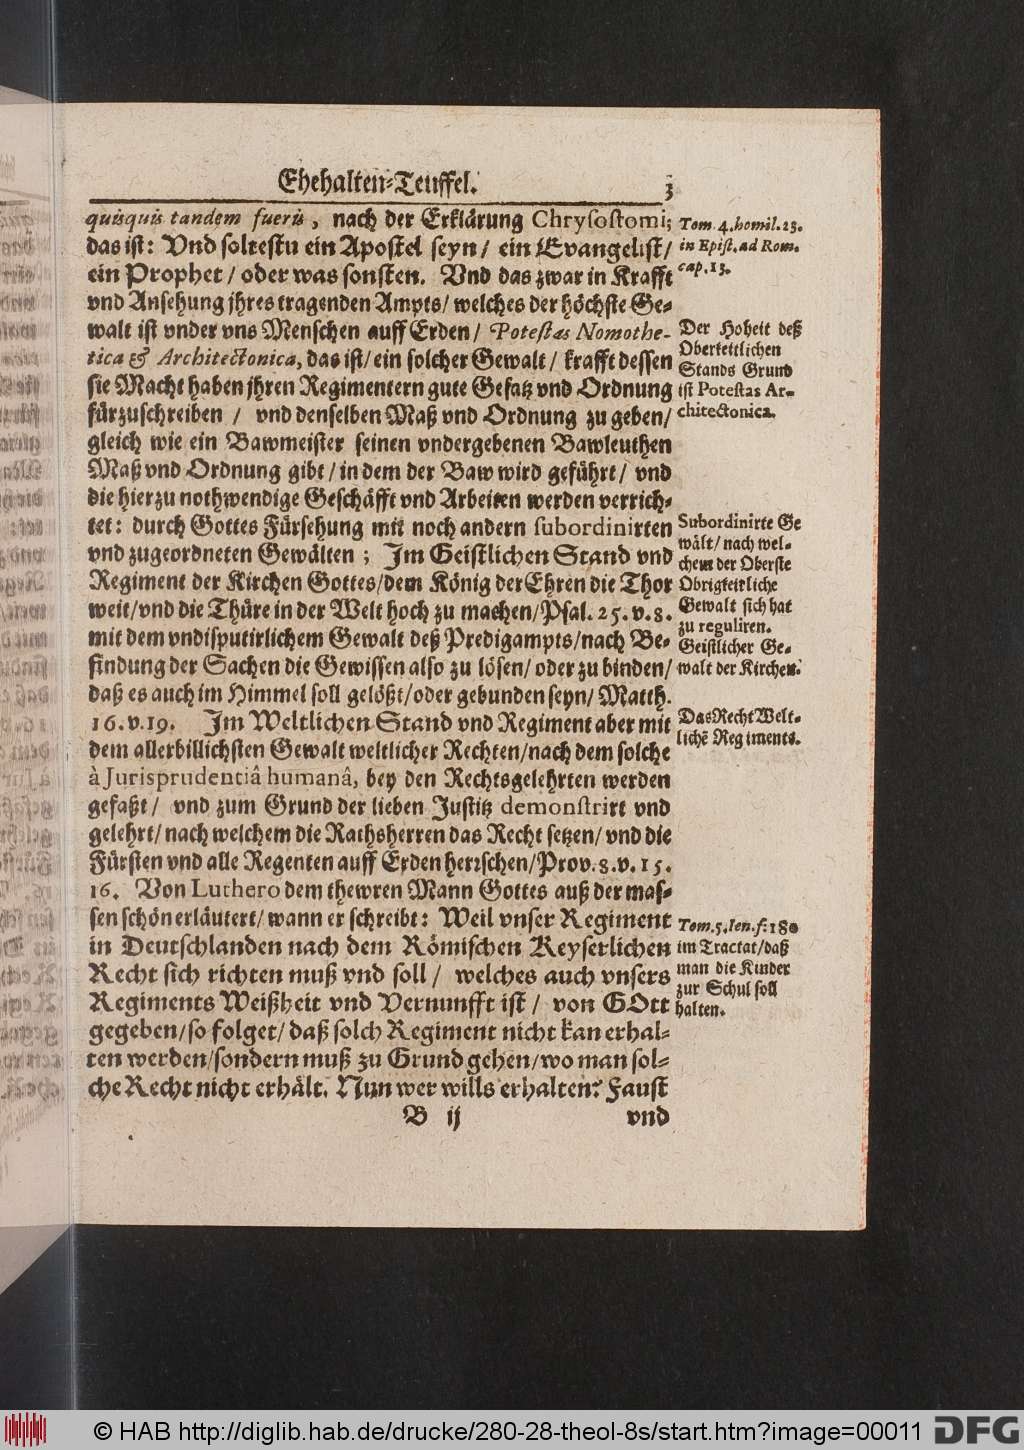 Ehehalten-Teuffel.
3
quisquis tandem fueris, nach der Erklärung Chrysostomi;
das ist: Vnd soltestu ein Apostel seyn/ ein Evangelist/
ein Prophet/ oder was sonsten. Vnd das zwar in Krafft
vnd Ansehung jhres tragenden Ampts/ welches der höchste Ge-
walt ist vnder vns Menschen auff Erden/ Potestas Nomothe-
tica & Architectonica, das ist/ ein solcher Gewalt/ krafft dessen
sie Macht haben jhren Regimentern gute Gesatz vnd Ordnung
fürzuschreiben / vnd denselben Maß vnd Ordnung zu geben/
gleich wie ein Bawmeister seinen vndergebenen Bawleuthen
Maß vnd Ordnung gibt/ in dem der Baw wird geführt/ vnd
die hierzu nothwendige Geschäfft vnd Arbeiten werden verrich-
tet: durch Gottes Fürsehung mit noch andern subordinirten
vnd zugeordneten Gewälten ; Jm Geistlichen Stand vnd
Regiment der Kirchen Gottes/ dem König der Ehren die Thor
weit/ vnd die Thüre in der Welt hoch zu machen/ Psal. 25. v. 8.
mit dem vndisputirlichem Gewalt deß Predigampts/ nach Be-
findung der Sachen die Gewissen also zu lösen/ oder zu binden/
daß es auch im Himmel soll gelößt/ oder gebunden seyn/ Matth.
16. v. 19. Jm Weltlichen Stand vnd Regiment aber mit
dem allerbillichsten Gewalt weltlicher Rechten/ nach dem solche
à Jurisprudentiâ humanâ, bey den Rechtsgelehrten werden
gefaßt/ vnd zum Grund der lieben Justitz demonstrirt vnd
gelehrt/ nach welchem die Rathsherren das Recht setzen/ vnd die
Fürsten vnd alle Regenten auff Erden herrschen/ Prov. 8. v. 15.
16. Von Luthero dem thewren Mann Gottes auß der mas-
sen schön erläutert/ wann er schreibt: Weil vnser Regiment
in Deutschlanden nach dem Römischen Keyserlichen
Recht sich richten muß vnd soll/ welches auch vnsers
Regiments Weißheit vnd Vernunfft ist/ von GOtt
gegeben/ so folget/ daß solch Regiment nicht kan erhal-
ten werden/ sondern muß zu Grund gehen/ wo man sol-
che Recht nicht erhält. Nun wer wills erhalten? Faust
B ij
vnd
Tom. 4. homil. 23.
in Epist. ad Rom.
cap. 13.
Der Hoheit deß
Oberkeitlichen
Stands Grund
ist Potestas Ar-
chitectonica.
Subordinirte Ge
wält/ nach wel-
chem der Oberste
Obrigkeitliche
Gewalt sich hat
zu reguliren.
Geistlicher Ge-
walt der Kirchen.
Das Recht Welt-
lichẽ Regiments.
Tom. 5. Ien. f: 180
im Tractat/ daß
man die Kinder
zur Schul soll
halten.
© HAB http://diglib.hab.de/drucke/280-28-theol-8s/start.htm?image=00011
DFG